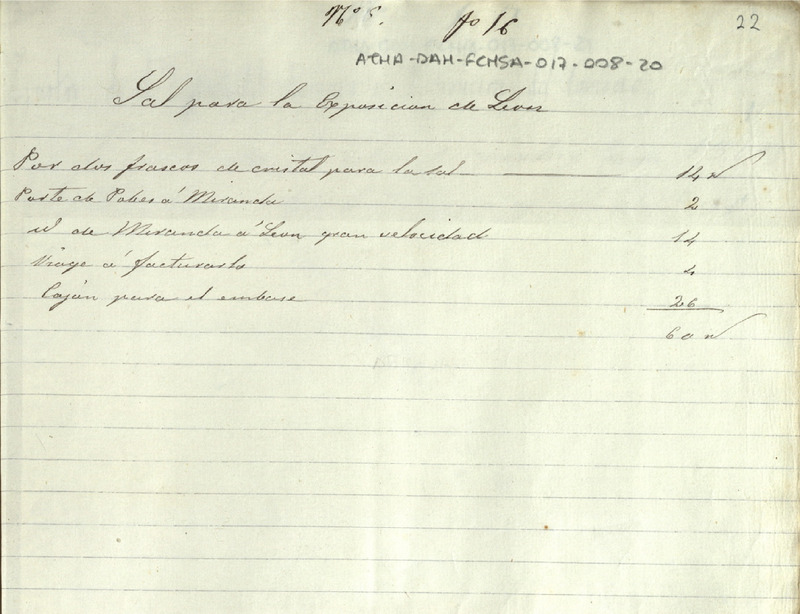 fo 16
22
ATHA-DAH-FCMSA-017-008-20
Sal para la Exposicion de Leon
Por dos frascos de cristal para la sal 14 rs
Porte de Pobes á Miranda 2
id de Miranda á Leon gran velocidad 14
Viage á facturarlo 4
Cajón para el embase 26
60 rs